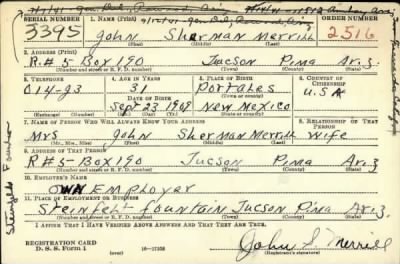 SERIAL NUMBER 1. NAME (Print) ORDER NUMBER
3395 John Sherman Merrill 2516
(First) (Middle) (Last)
2. ADDRESS (Print)
R.#5-Box190 Tucson Pima Ariz
(Number and street or R. F. D. number) (Town) (County) (State)
3. TELEPHONE 4. AGE IN YEARS 5. PLACE OF BIRTH 6. COUNTRY OF CITIZENSHIP
014-J3 31 Portales U.S.A
DATE OF BIRTH
Sept 23 1909 New Mexico
(Exchange) (Number) (Mo.) (Day) (Yr.) (State or country)
7. NAME OF PERSON WHO WILL ALWAYS KNOW YOUR ADDRESS 8. RELATIONSHIP OF THAT PERSON
Mrs John Sherman Merrill Wife
(Mr., Mrs., Miss) (First) (Middle) (Last)
9. ADDRESS OF THAT PERSON
R#5-Box190 Tucson Pima Ariz
(Number and street or R. F. D. number) (Town) (County) (State)
10. EMPLOYER'S NAME
OWN EMPloyer
11. PLACE OF EMPLOYMENT OR BUSINESS
Steinfelt fountain Tucson Pima Ariz
(Number and street or R. F. D. number) (Town) (County) (State)
I AFFIRM THAT I HAVE VERIFIED ABOVE ANSWERS AND THAT THEY ARE TRUE.
REGISTRATION CARD
D. S. S. Form 1 (over) John S. Merrill
(Registrant's signature)